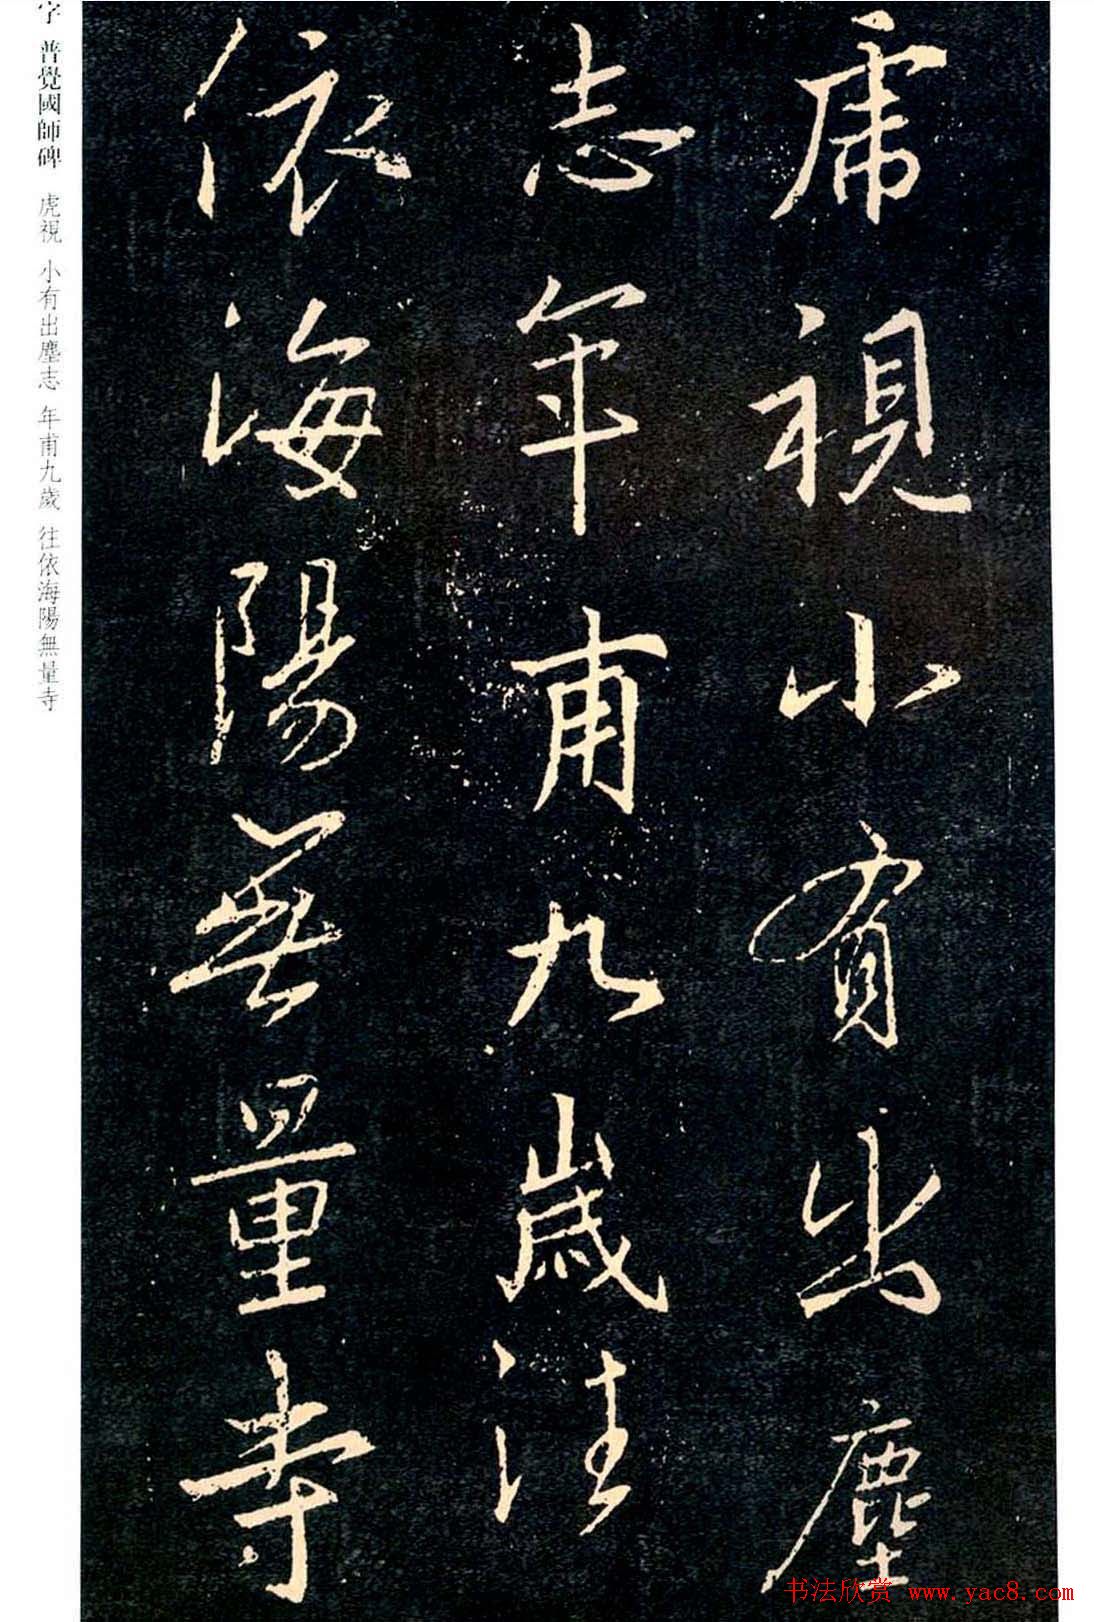 虎視小有出塵
志年甫九歲往
依海陽無量寺
字 普覺國師碑 虎視 小有出塵志 年甫九歲 往依海陽無量寺
书法欣赏 www.yac8.com